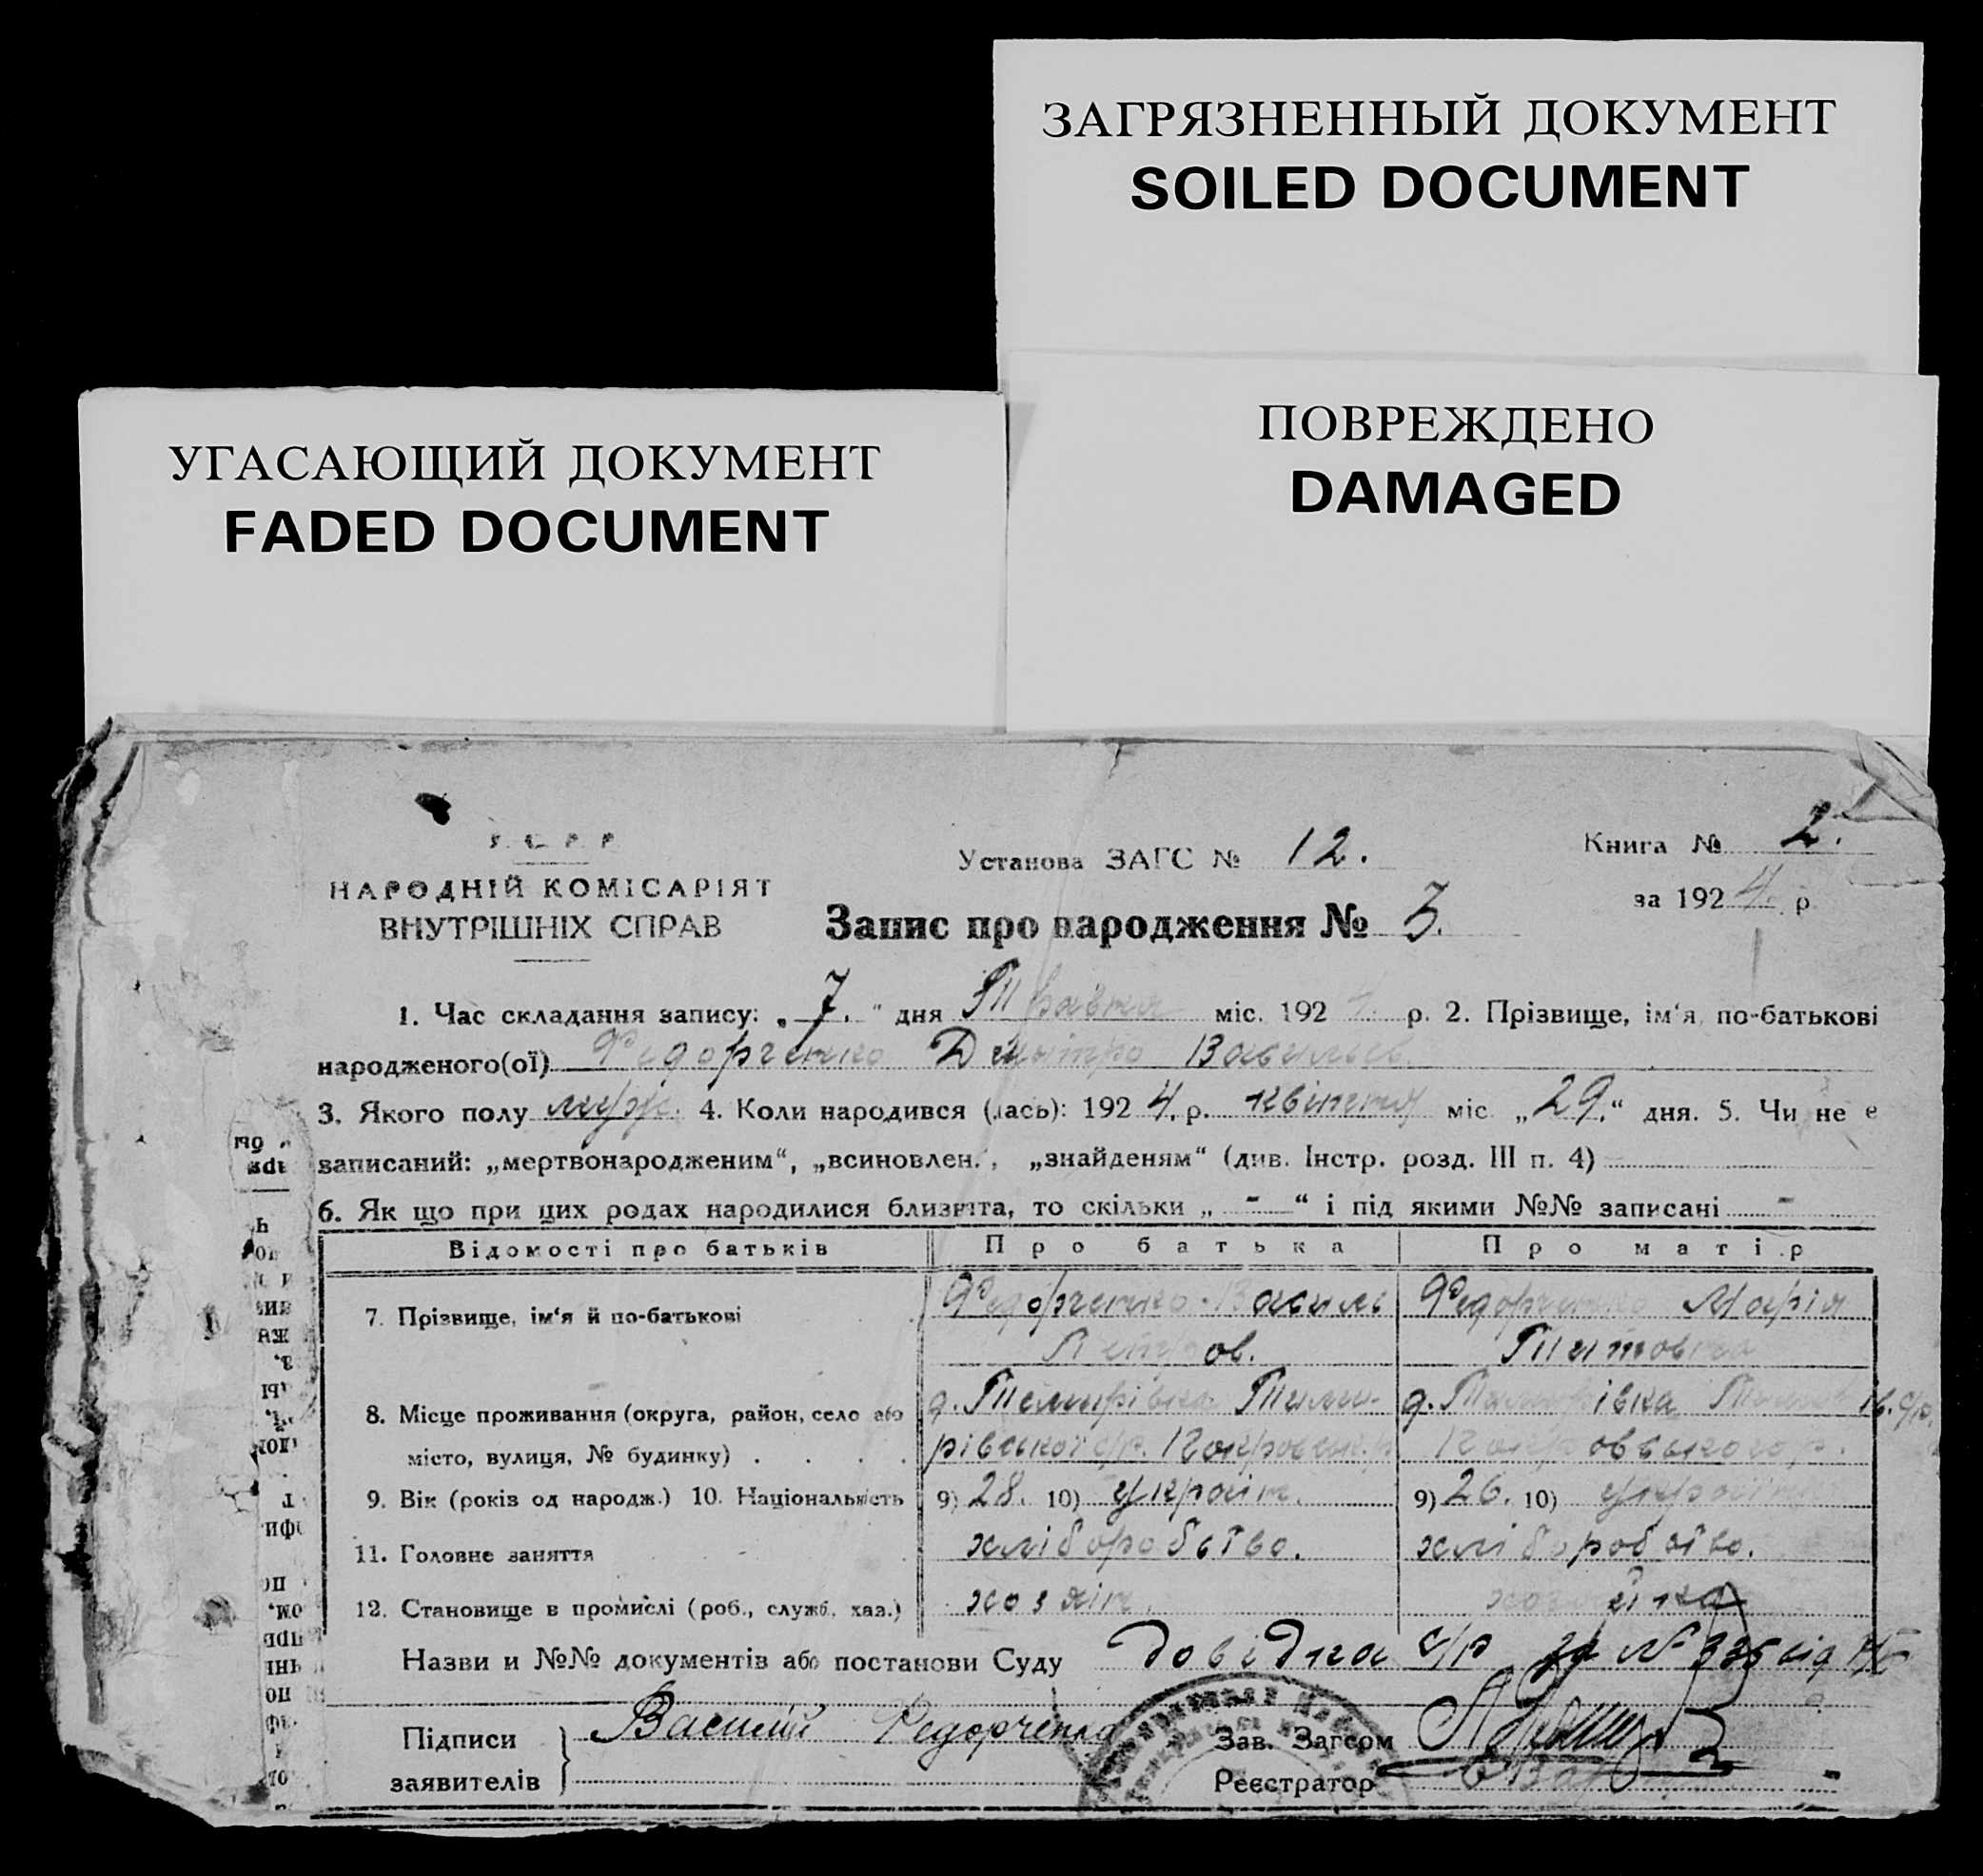 ЗАГРЯЗНЕННЫЙ ДОКУМЕНТ
SOILED DOCUMENT
УГАСАЮЩИЙ ДОКУМЕНТ
FADED DOCUMENT
ПОВРЕЖДЕНО
DAMAGED
НАРОДНІЙ КОМІСАРІЯТ
ВНУТРІШНІХ СПРАВ
Установа ЗАГС № 12.
Книга № 2.
за 1924 р.
Запис про народження № 3.
1. Час складання запису: „7.“ дня Травня міс. 1924 р. 2. Прізвище, ім‘я, по-батькові
народженого(ої) Федорченко Дмитро Васильев.
3. Якого полу муж. 4. Коли народився (лась): 1924. р. квітня міс. „29.“ дня. 5. Чи не є
записаний: „мертвонародженим“, „всиновлен.“, „знайденям“ (див. Інстр. розд. III п. 4)
6. Як що при цих родах народилися близнята, то скільки „-“ і під якими №№ записані -
Відомості про батьків Про батька Про матір
7. Прізвище, ім‘я й по-батькові Федорченко Василь Федорченко Марія
Петров. Титовна
8. Місце проживання (округа, район, село або д. Темирівка Теми- д. Темирівка
місто, вулиця, № будинку) рівської с/р. Покровськ. р. Покровського р.
9. Вік (років од народж.) 10. Національність 9) 28. 10) україн. 9) 26. 10) україн
11. Головне заняття хліборобство. хліборобство.
12. Становище в промислі (роб., служб., хаз.) хозяін. хозяйка
Назви и №№ документів або постанови Суду довідка с/р за №
Підписи Василий Федорченко Зав. Загсом
заявителів Реєстратор